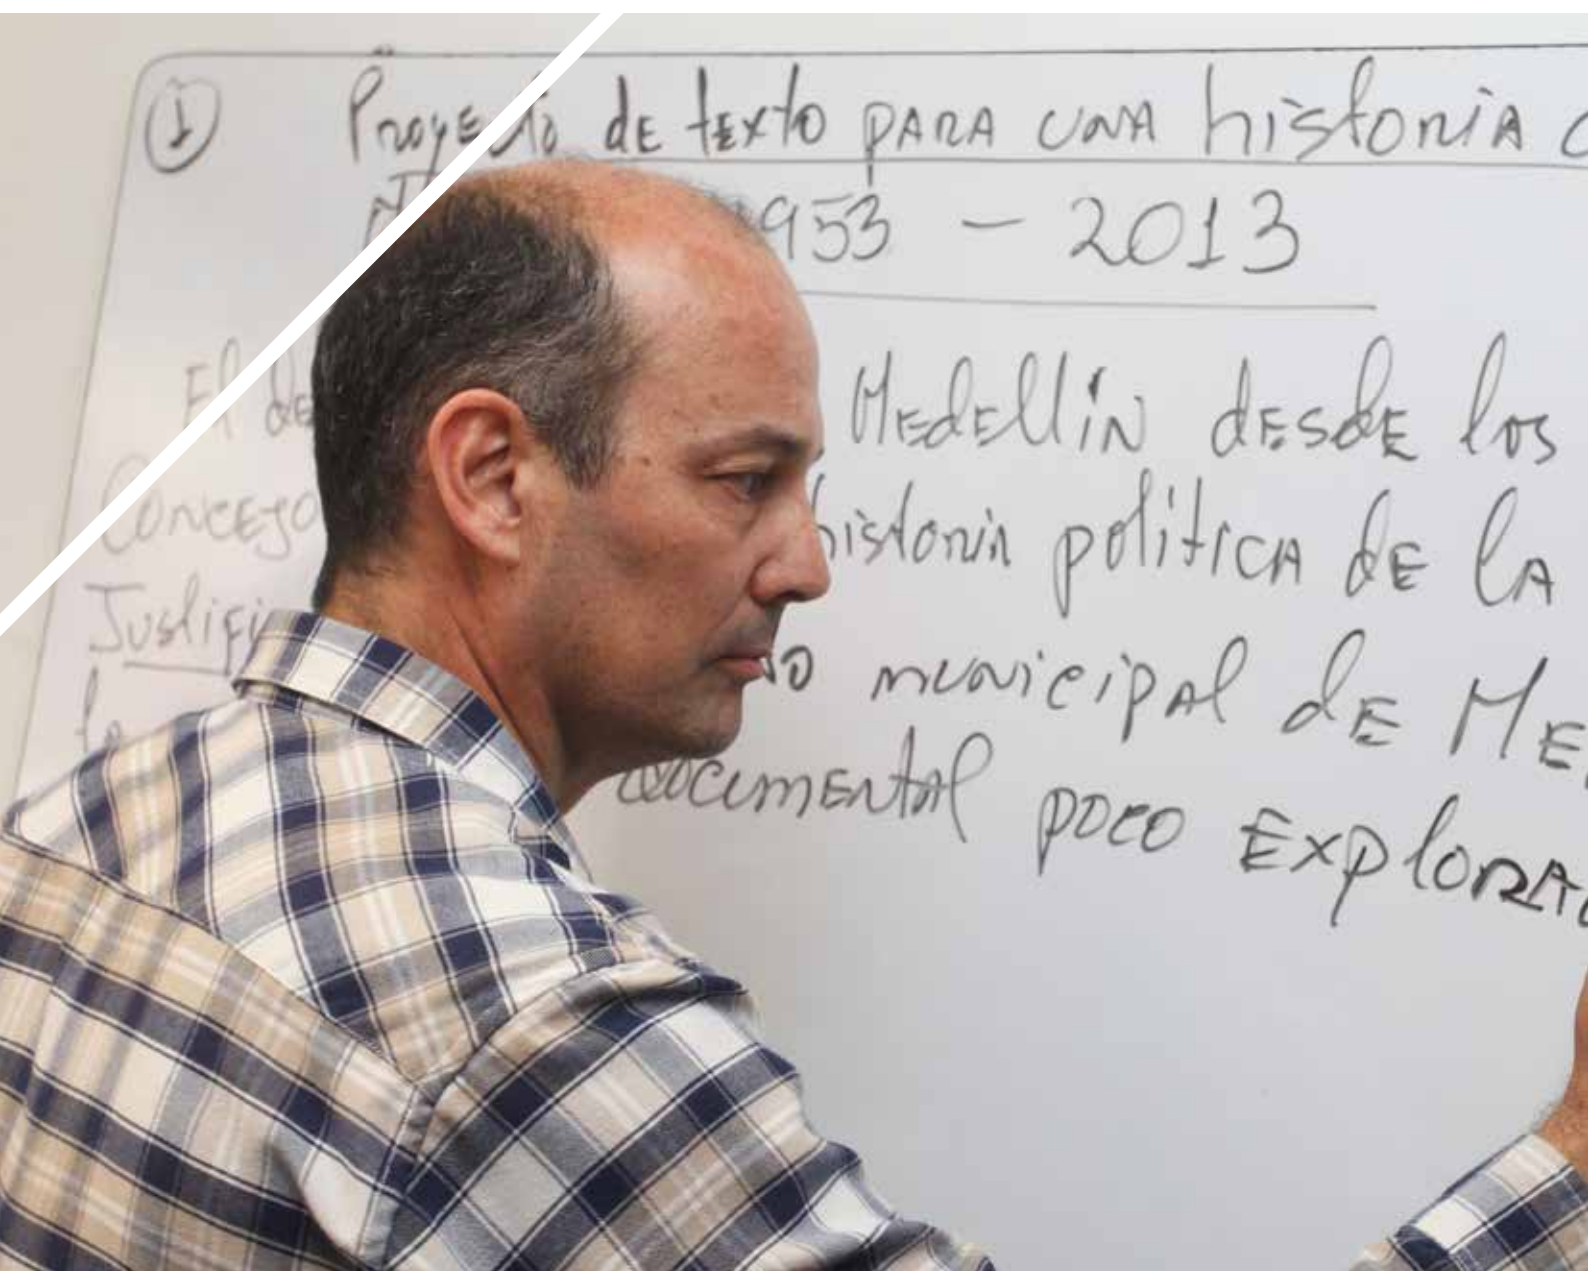 1 Proyecto de texto para una historia
953 - 2013
El de Medellín desde los
Concejo historia política de la
Justifi municipal de Me
documental poco explora